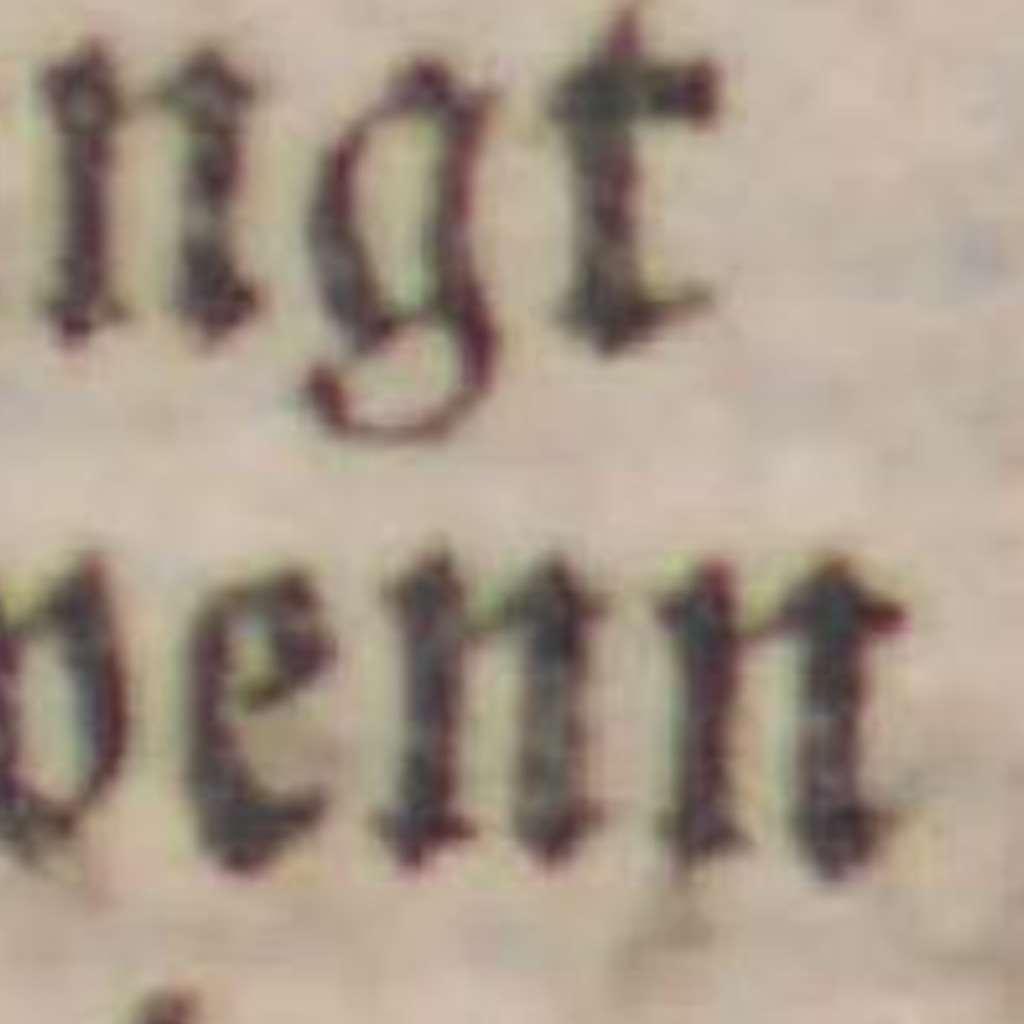 ngt
venn